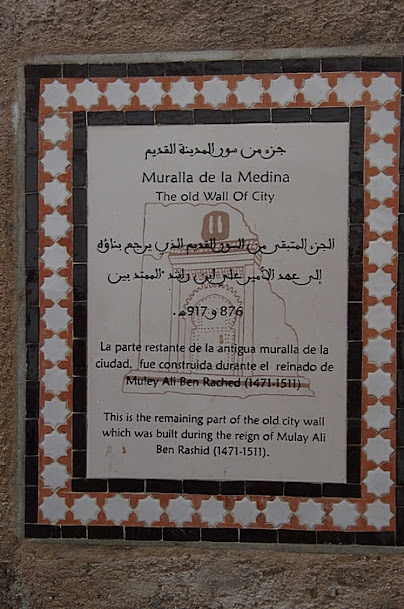 جزء من سور المدينة القديم
Muralla de la Medina
The old Wall Of City
الجزء المتبقى من السور القديم الذي يرجع بناؤه
إلى عهد الأمير علي ابن راشد الممتد بين
876 و 917هـ.
La parte restante de la antigua muralla de la
ciudad, fue construida durante el reinado de
Muley Ali Ben Rached (1471-1511)
This is the remaining part of the old city wall
which was built during the reign of Mulay Ali
Ben Rashid (1471-1511).